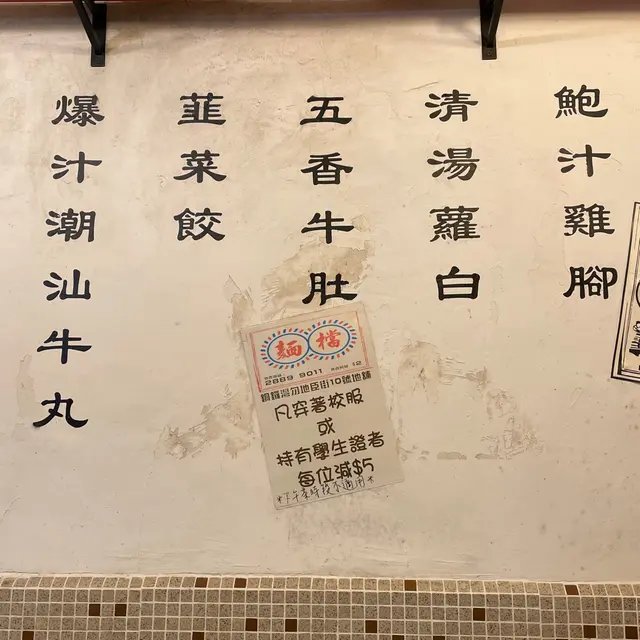 鮑汁雞腳
清湯蘿白
五香牛肚
韮菜餃
爆汁潮汕牛丸
麵檔
2889 9011
銅鑼灣勿地臣街10號地舖
凡穿著校服
或
持有學生證者
每位減$5
*下午茶時段不適用*